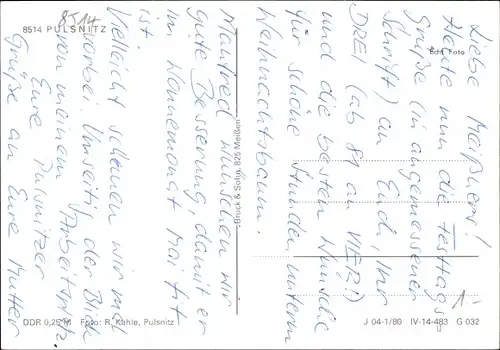 8514
8514 PULSNITZ
Echt Foto
Liebe Meißner!
Heute nun die Festtags-
Grüße (in angemessener
Schrift) an Euch, Ihr
DREI (ab 81 an VIER!)
und die besten Wünsche
für schöne Stunden unterm
Weihnachtsbaum.
Manfred wünschen wir
gute Besserung, damit er
im Wonnemonat Mai fit
ist.
Vielleicht schauen wir mal
vorbei. Umseitig der Blick
von meinem Arbeitsplatz
Eure Pulsnitzer
Grüße an Eure Mutter
Druck & Sohn, 825 Meißen
1-
DDR 0,25 M Foto: R. Kahle, Pulsnitz
J 04-1/80 IV-14-483 G 032